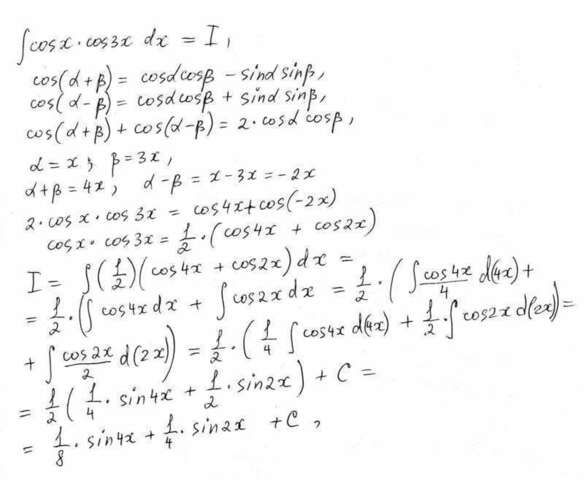 ∫cosx·cos3x dx = I,
cos(α+β) = cosαcosβ - sinα sinβ,
cos(α-β) = cosαcosβ + sinα sinβ,
cos(α+β) + cos(α-β) = 2·cosα cosβ,
α = x; β = 3x,
α+β = 4x; α-β = x-3x = -2x
2·cos x·cos 3x = cos4x+cos(-2x)
cosx·cos3x = 1/2·(cos4x + cos2x)
I = ∫(1/2)(cos4x + cos2x)dx =
= 1/2·(∫cos4x dx + ∫cos2x dx = 1/2·(∫cos4x/4 d(4x)+
+ ∫cos2x/2 d(2x)) = 1/2·(1/4 ∫cos4x d(4x) + 1/2·∫cos2x d(2x))=
= 1/2(1/4·sin4x + 1/2·sin2x) + C =
= 1/8·sin4x + 1/4·sin2x + C,